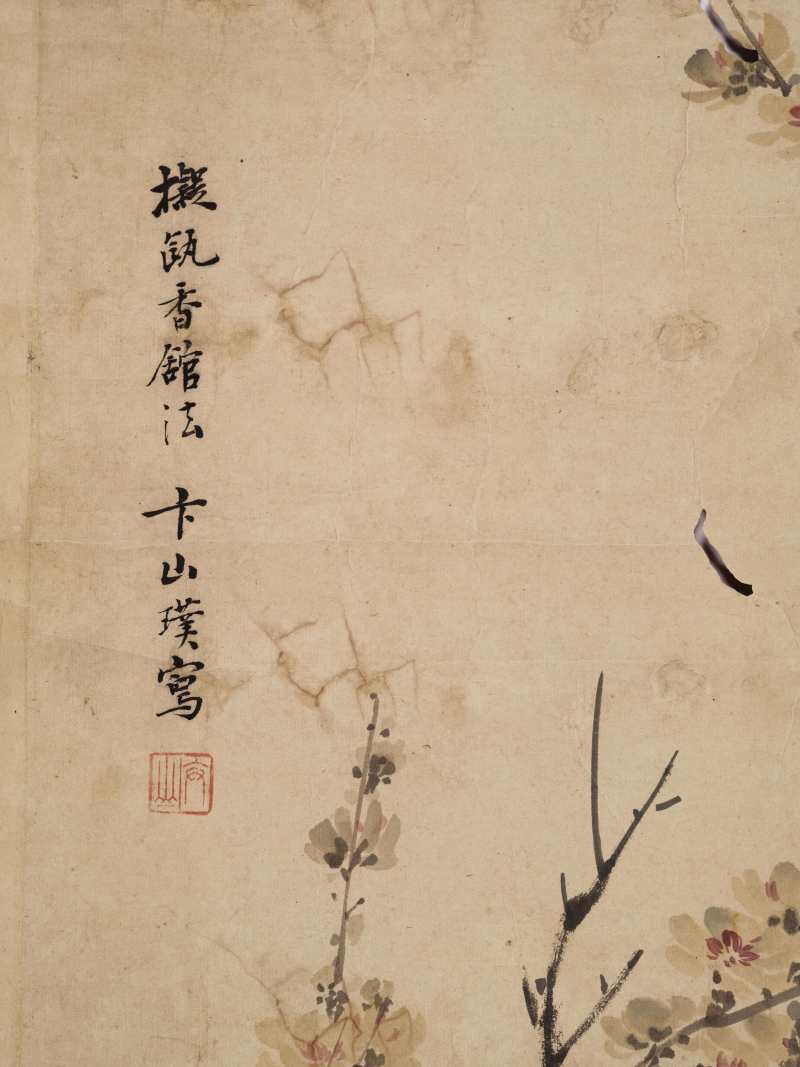 擬甌香舘法 卞山璞寫